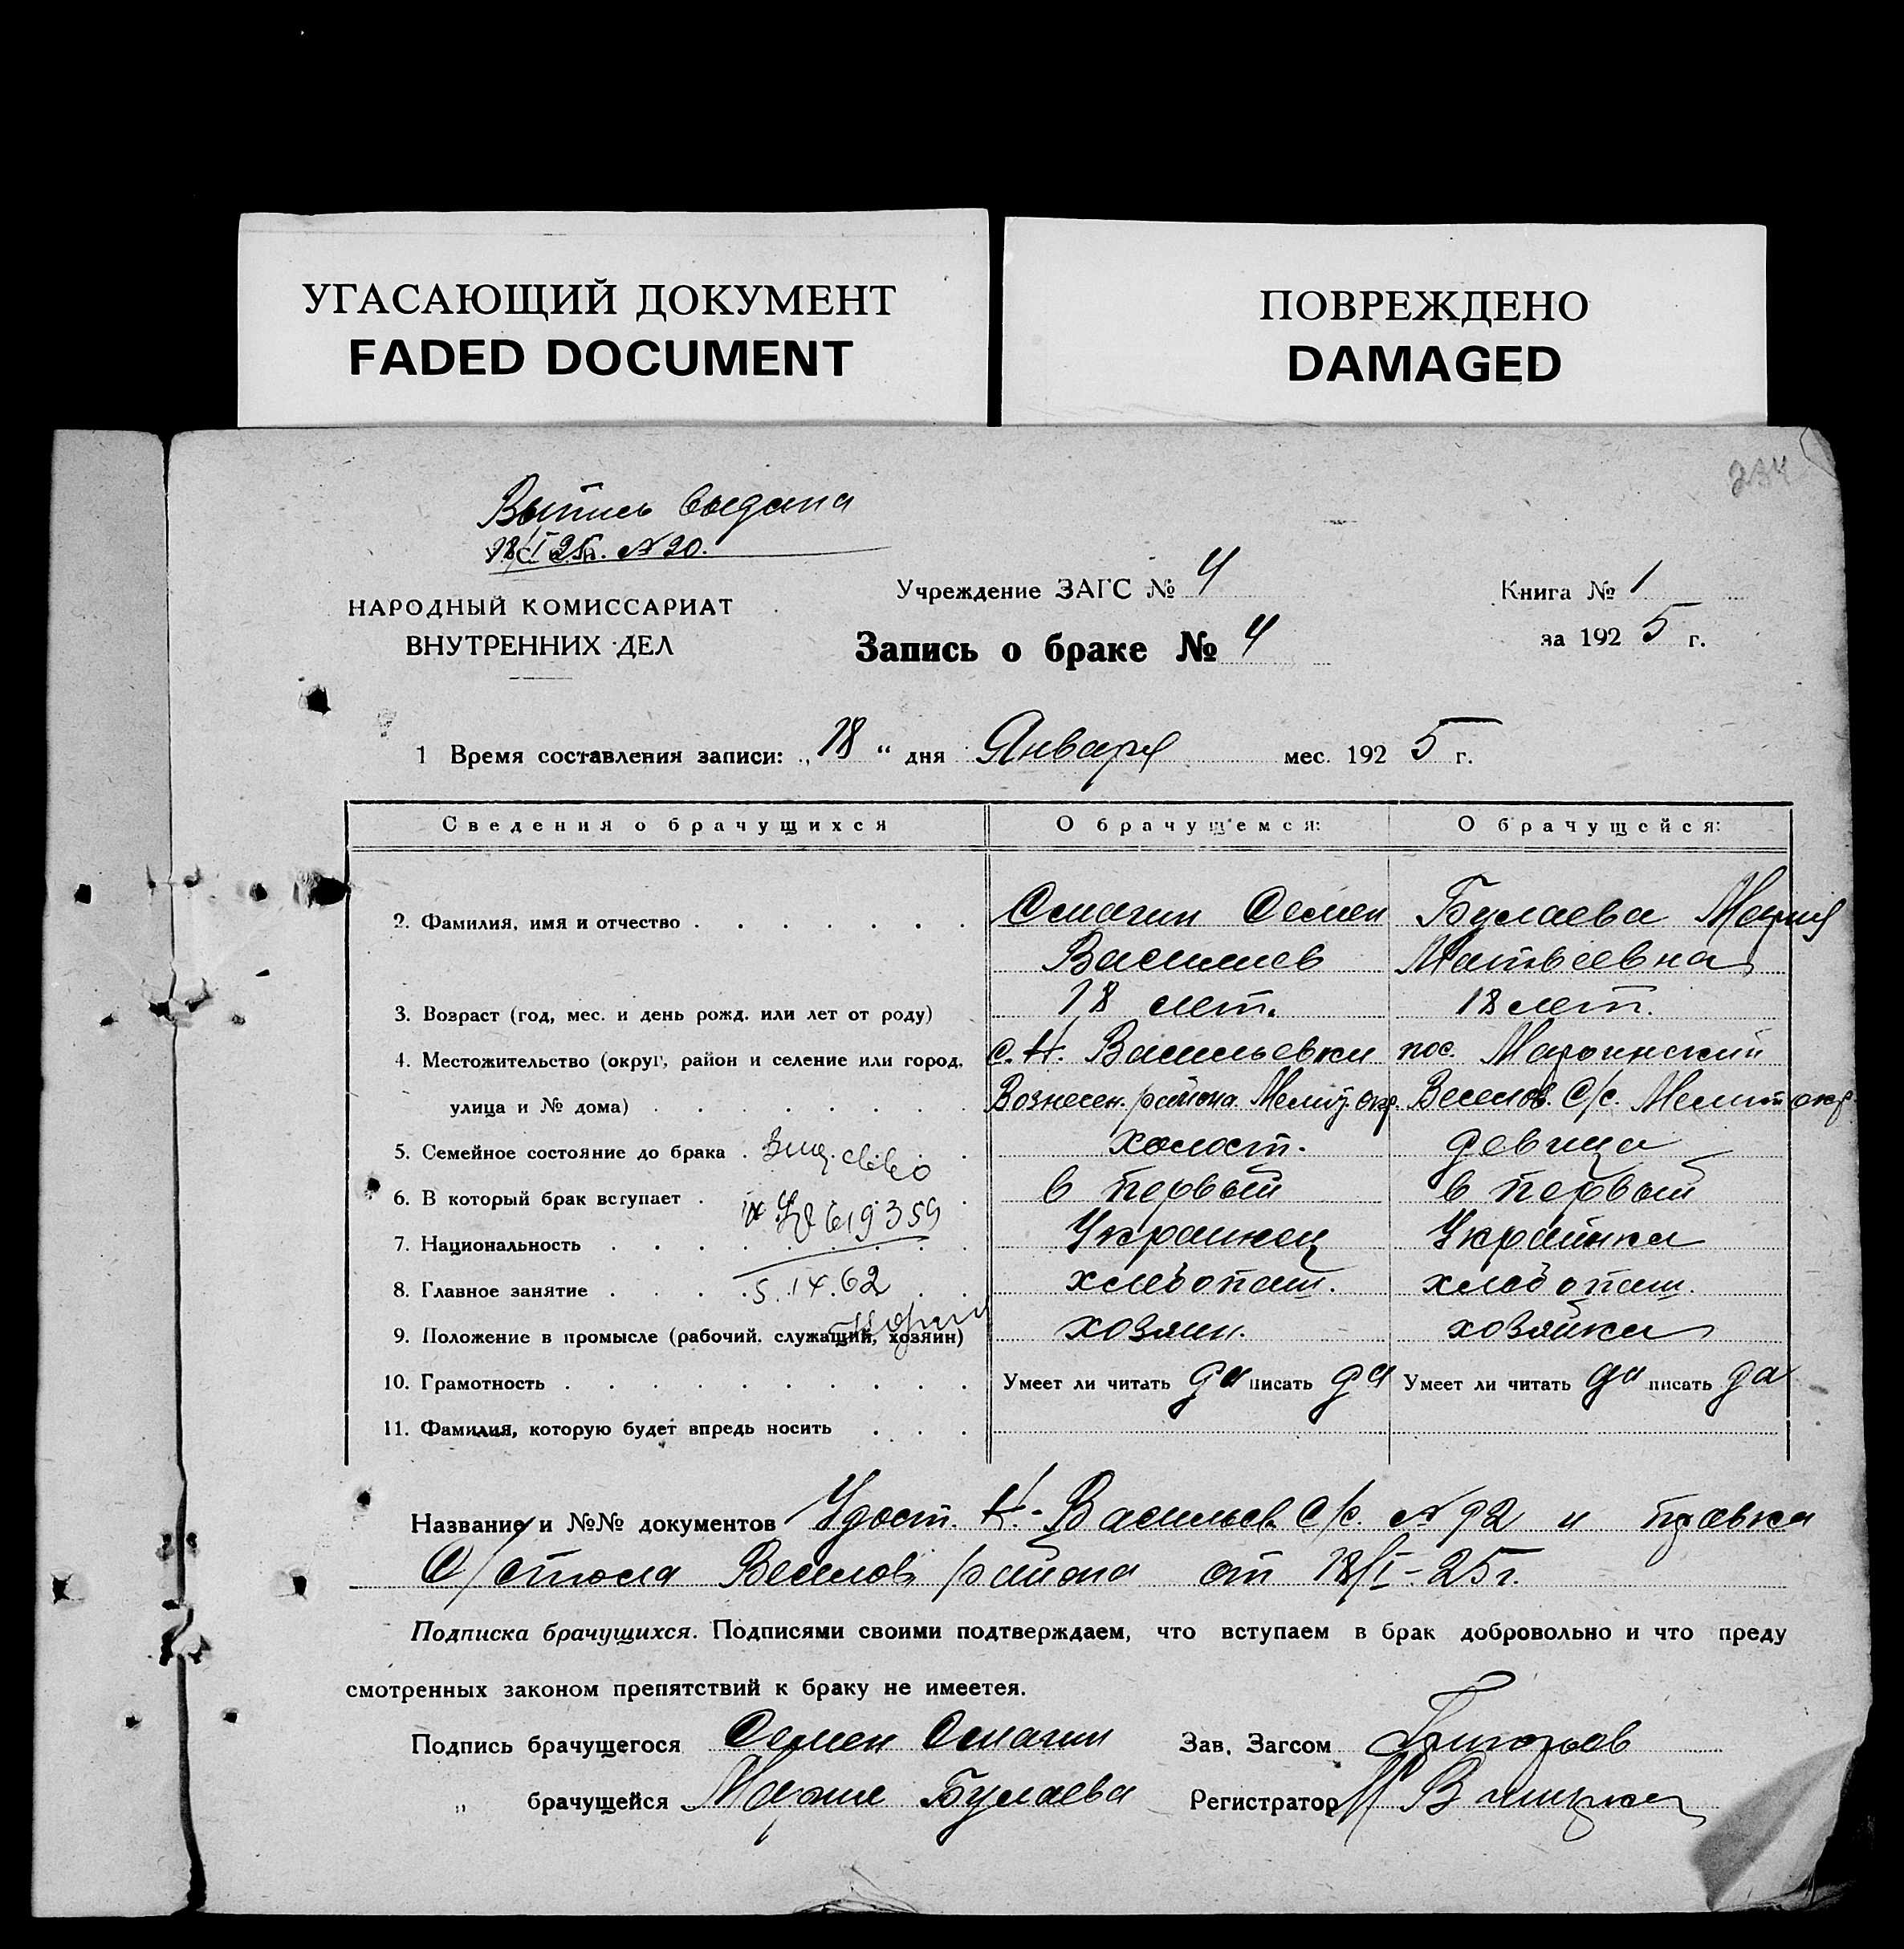 УГАСАЮЩИЙ ДОКУМЕНТ
FADED DOCUMENT
ПОВРЕЖДЕНО
DAMAGED
234
Выпись выдана
18/I 25г. № 20.
НАРОДНЫЙ КОМИССАРИАТ
ВНУТРЕННИХ ДЕЛ
Учреждение ЗАГС № 4
Запись о браке № 4
Книга № 1
за 1925 г.
1 Время составления записи: „18“ дня Января мес. 1925 г.
Сведения о брачущихся О брачущемся: О брачущейся:
2. Фамилия, имя и отчество Смагин Семен Булаева Мария
Васильев Матвеевна
3. Возраст (год, мес. и день рожд. или лет от роду) 18 лет. 18 лет.
4. Местожительство (округ, район и селение или город, с. Н. Васильевки пос. Мариинский
улица и № дома) Вознесен. района Мелит. окр. Веселов. С/с. Мелит окр.
5. Семейное состояние до брака холост. девица
6. В который брак вступает в первый в первый
7. Национальность Украинец Украинка
8. Главное занятие хлебопаш. хлебопаш.
9. Положение в промысле (рабочий, служащий, хозяин) хозяин. хозяйка
10. Грамотность Умеет ли читать да писать да Умеет ли читать да писать да
11. Фамилия, которую будет впредь носить
619359
5.IX.62
Название и №№ документов Удост. Н.-Васильев. С/с. № 92 и
С/стола Веселов района от 18/I-25г.
Подписка брачущихся. Подписями своими подтверждаем, что вступаем в брак добровольно и что преду
смотренных законом препятствий к браку не имеетея.
Подпись брачущегося Семен Смагин Зав. Загсом Григорьев
„ брачущейся Мария Булаева Регистратор